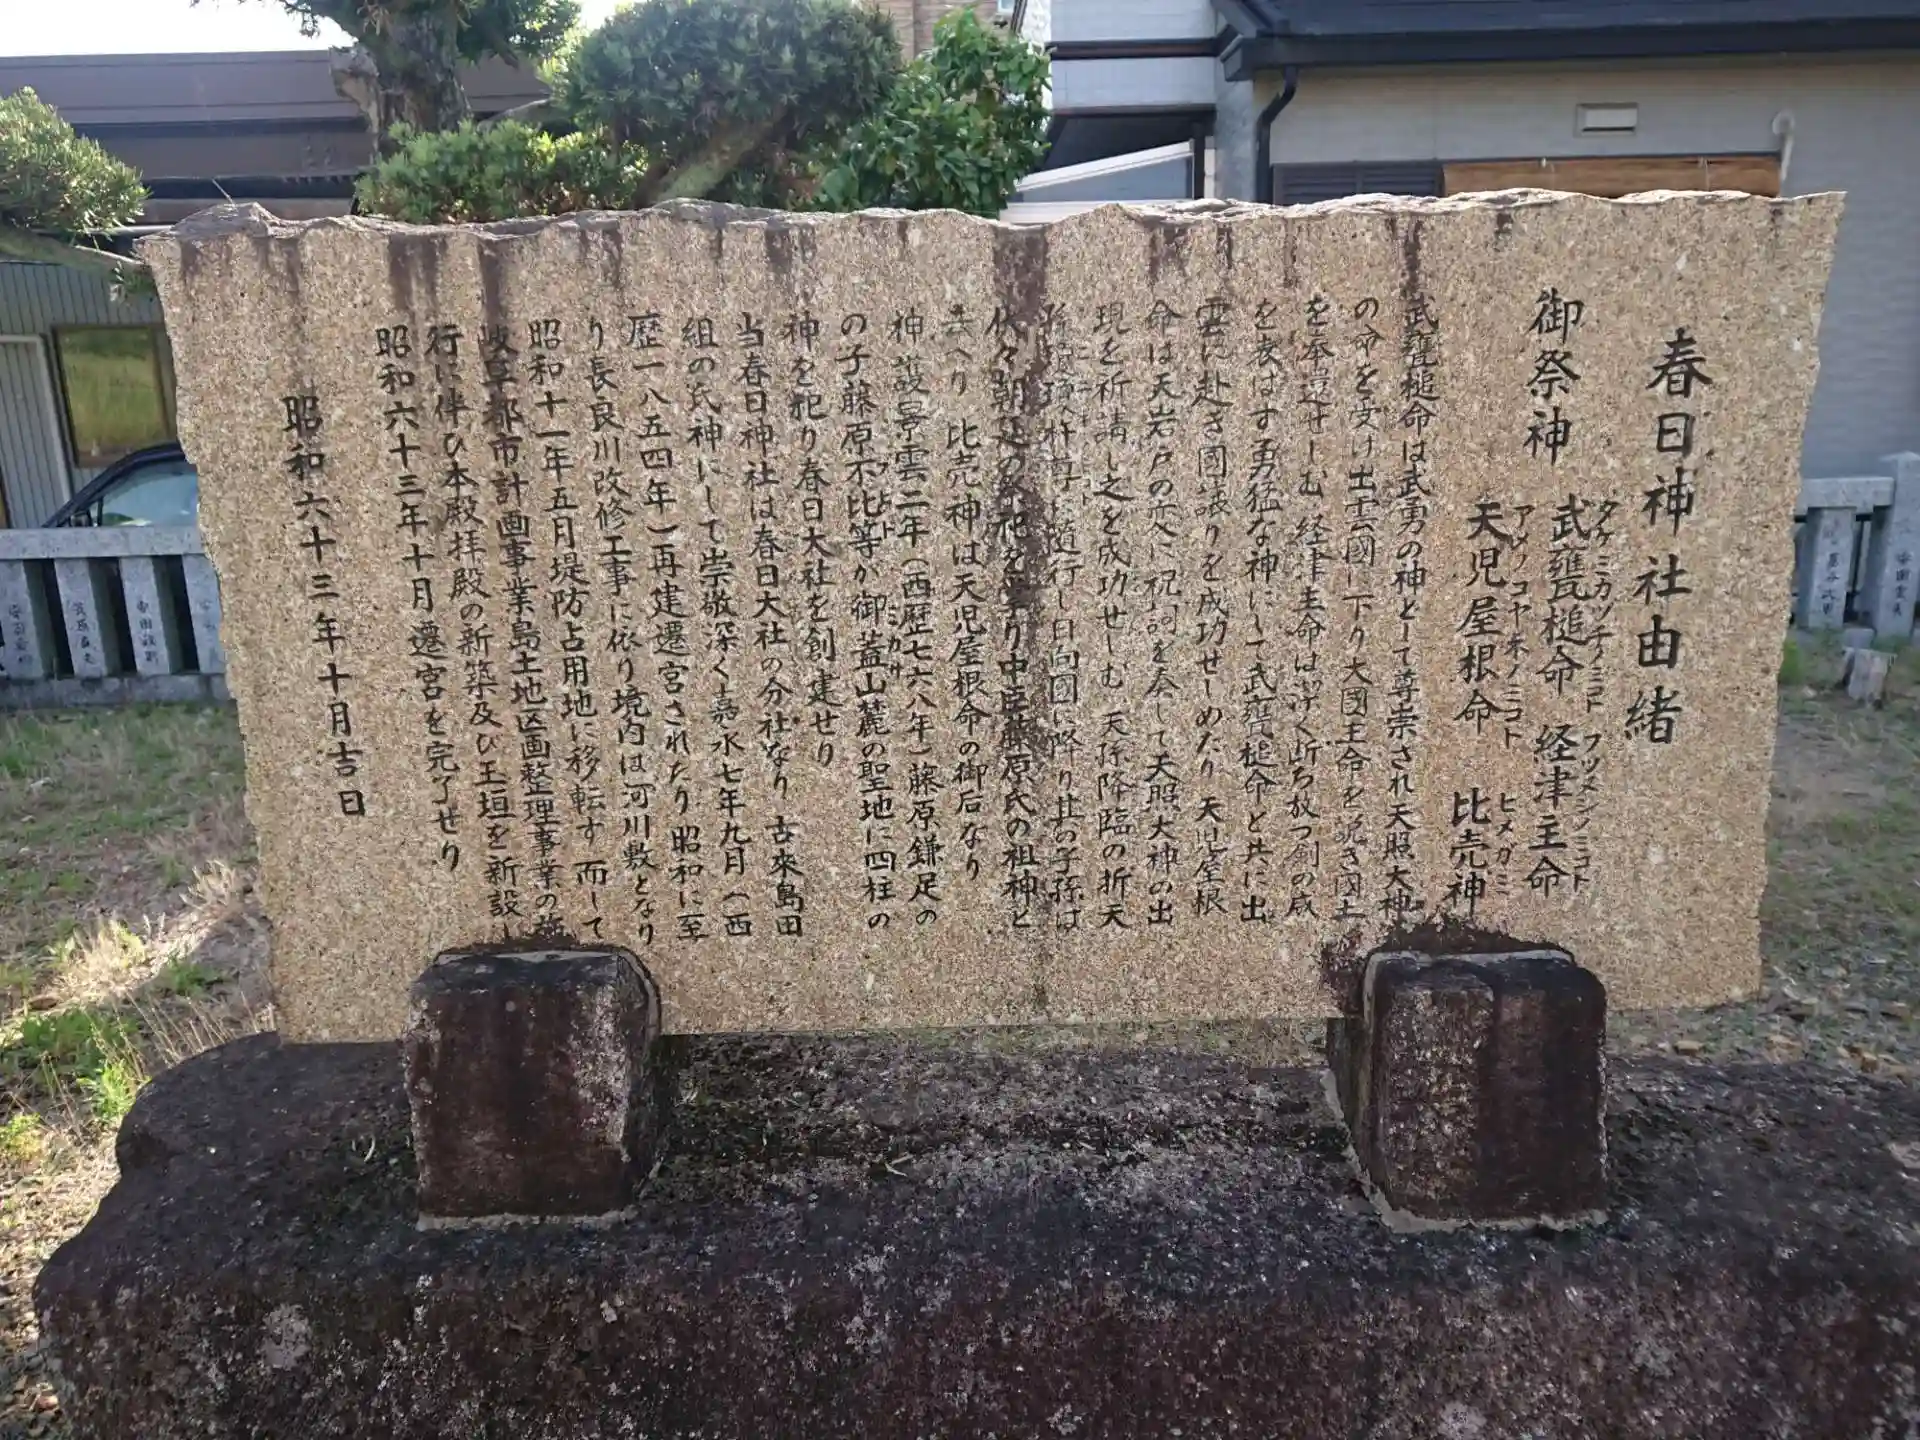 春日神社由緒
御祭神
タケミカツチノミコト フツヌシノミコト
武甕槌命 経津主命
アメノコヤネノミコト ヒメガミ
天児屋根命 比売神
武甕槌命は武勇の神として尊崇され天照大神
の命を受け出雲國に下り大國主命を説き國土
を奉還せしむ 経津主命は浮く断ち放つ剣の威
を表はす勇猛な神にして武甕槌命と共に出
雲に赴き國譲りを成功せしめたり 天児屋根
命は天岩戸の変に祝詞を奏して天照大神の出
現を祈請し之を成功せしむ 天孫降臨の折天
に随行し日向國に降り其の子孫は
代々朝廷の祭祀を掌り中臣藤原氏の祖神と
云へり 比売神は天児屋根命の御后なり
神護景雲二年(西歴七六八年)藤原鎌足の
の子藤原不比等が御蓋山麓の聖地に四柱の
フヒト ミカサ
神を祀り春日大社を創建せり
当春日神社は春日大社の分社なり 古来島田
組の氏神にして崇敬深く嘉永七年九月(西
歴一八五四年)再建遷宮されたり昭和に至
り長良川改修工事に依り境内は河川敷となり
昭和十一年五月堤防占用地に移転す 而して
岐阜都市計画事業島土地区画整理事業の施
行に伴ひ本殿拝殿の新築及び玉垣を新設し
昭和六十三年十月遷宮を完了せり
昭和六十三年十月吉日